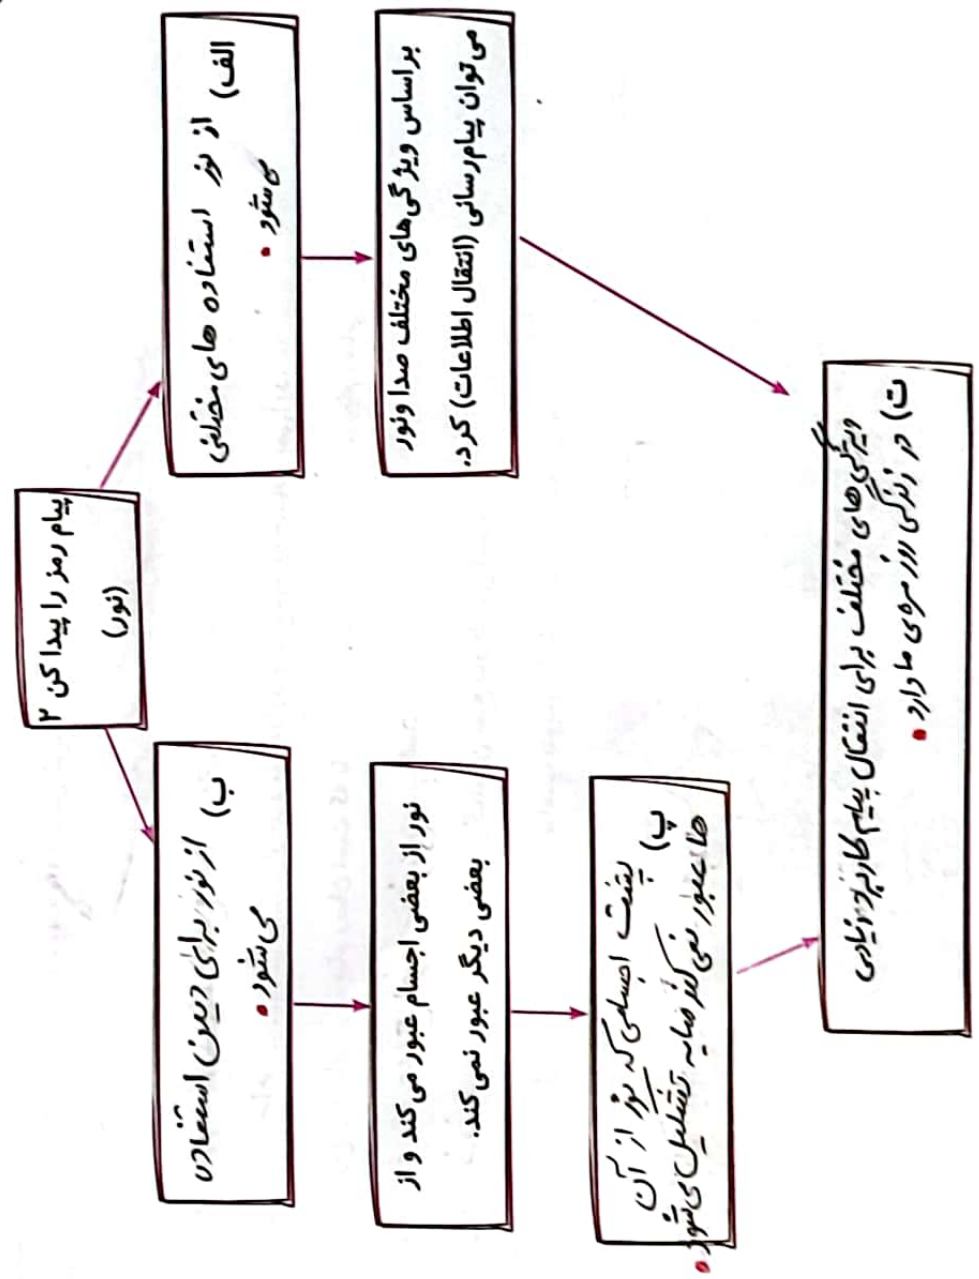 پیام رمز را پیدا کن ۲
(نور)
الف)
از نور استفاده های مختلفی
می شود.
بر اساس ویژگی‌های مختلف صدا و نور
می توان پیام رسانی (انتقال اطلاعات) کرد.
ب)
از نور برای دیدن استفاده
می شود.
نور از بعضی اجسام عبور می کند و از
بعضی دیگر عبور نمی کند.
پ)
پشت اجسامی که نور از آن
ها عبور نمی کند سایه تشکیل می شود.
ویژگی های مختلف برای انتقال پیام کاربرد زیادی
ت) در زندگی روز مره‌ی ما دارد.